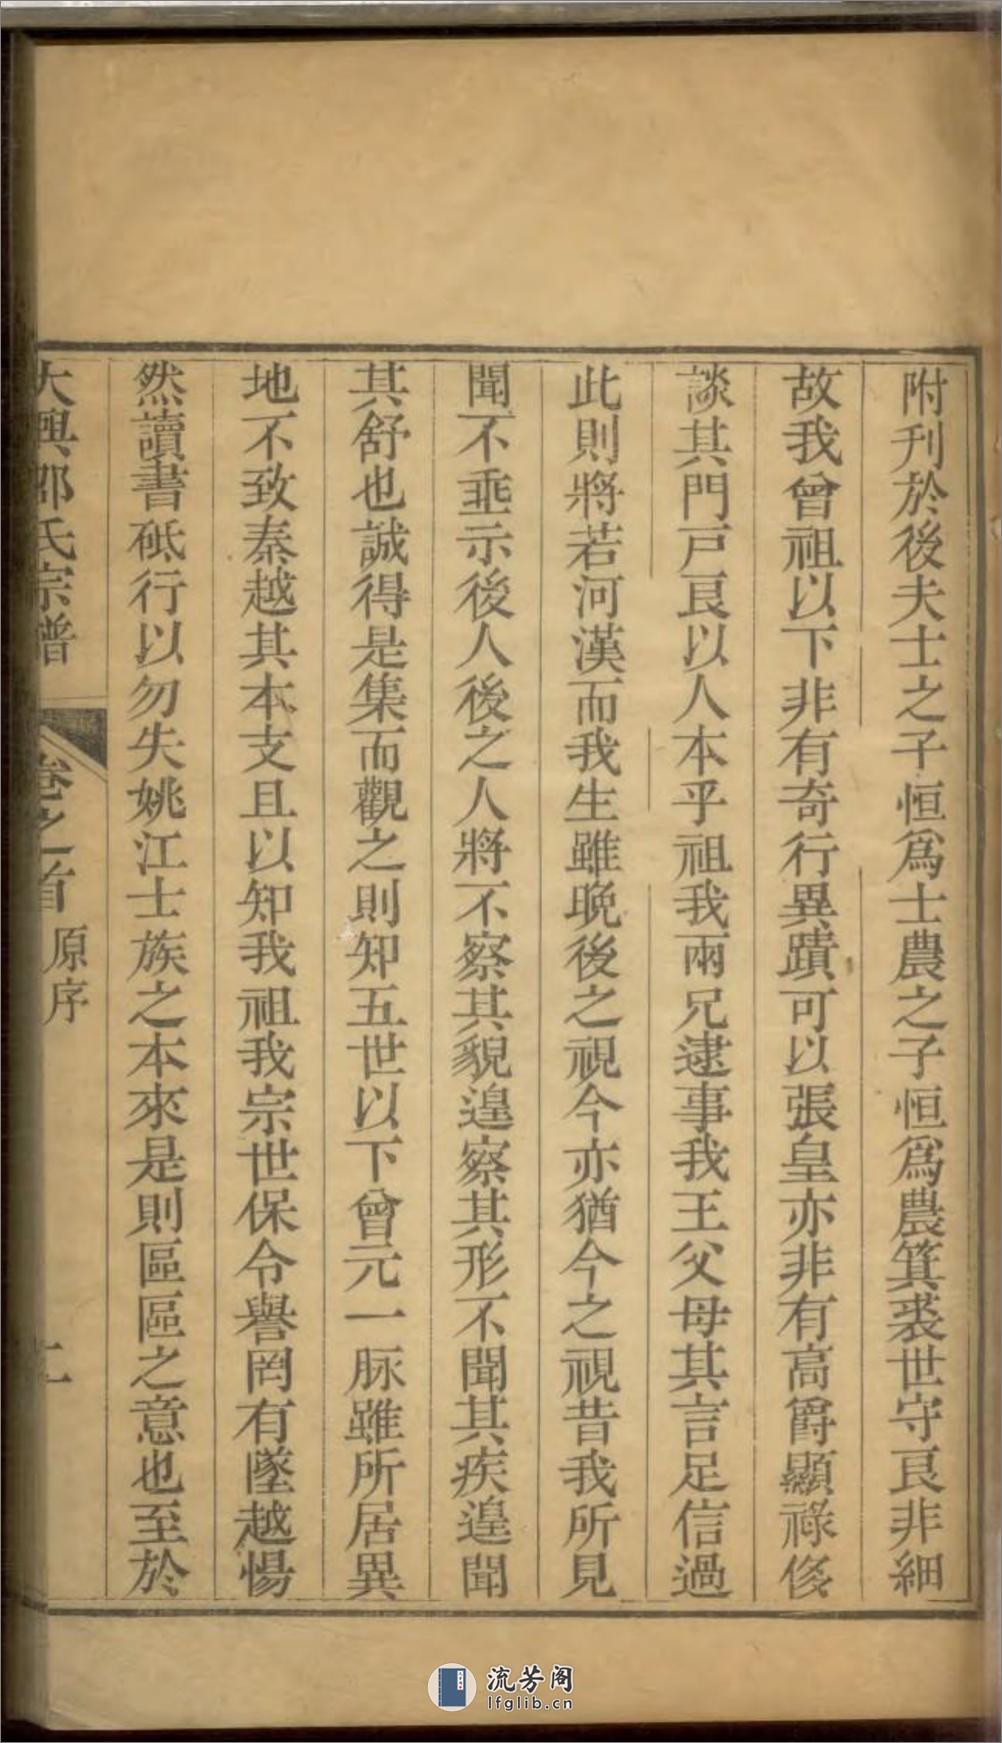 附刊於後夫士之子恒爲士農之子恒爲農箕裘世守良非細
故我曾祖以下非有奇行異蹟可以張皇亦非有高爵顯祿侈
談其門戸良以人本乎祖我兩兄逮事我王父母其言足信過
此則將若河漢而我生雖晚後之視今亦猶今之視昔我所見
聞不亟示後人後之人將不察其貌遑察其形不聞其疾遑聞
其舒也誠得是集而觀之則知五世以下曾元一脉雖所居異
地不致秦越其本支且以知我祖我宗世保令譽罔有墜越惕
然讀書砥行以勿失姚江士族之本來是則區區之意也至於
大興邵氏宗譜
卷之首
原序
二
流芳阁
lfglib.cn